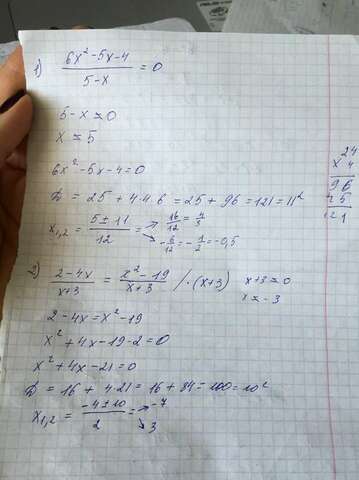 1) (6x² - 5x - 4)/(5 - x) = 0
5 - x ≠ 0
x ≠ 5
6x² - 5x - 4 = 0
D = 25 + 4·4·6 = 25 + 96 = 121 = 11²
x₁,₂ = (5 ± 11)/12 = → 16/12 = 4/3
↘ -6/12 = -1/2 = -0,5
24
x 4
96
25
121
2) (2 - 4x)/(x + 3) = (x² - 19)/(x + 3) / · (x + 3) x + 3 ≠ 0
x ≠ -3
2 - 4x = x² - 19
x² + 4x - 19 - 2 = 0
x² + 4x - 21 = 0
D = 16 + 4·21 = 16 + 84 = 100 = 10²
x₁,₂ = (-4 ± 10)/2 = → -7
↘ 3